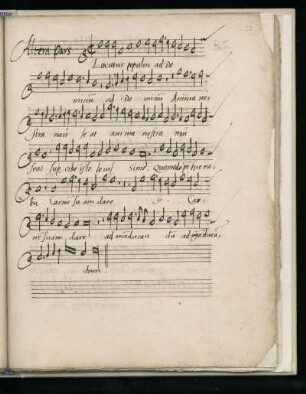 Altera Pars
Locutus populus ad Do
minum ad Dominum Anima no
stra nau se at anima nostra nau
seat sup cibo isto levis simo, Quomodo
carne suam dare Car
ne suam dare ad manducan dum ad manduca,
dum